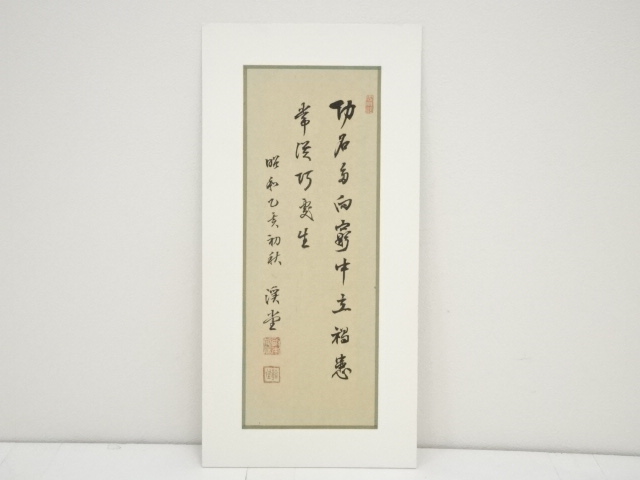 功名多向窮中立禍患
常従巧処生
昭和乙亥初秋
渓堂